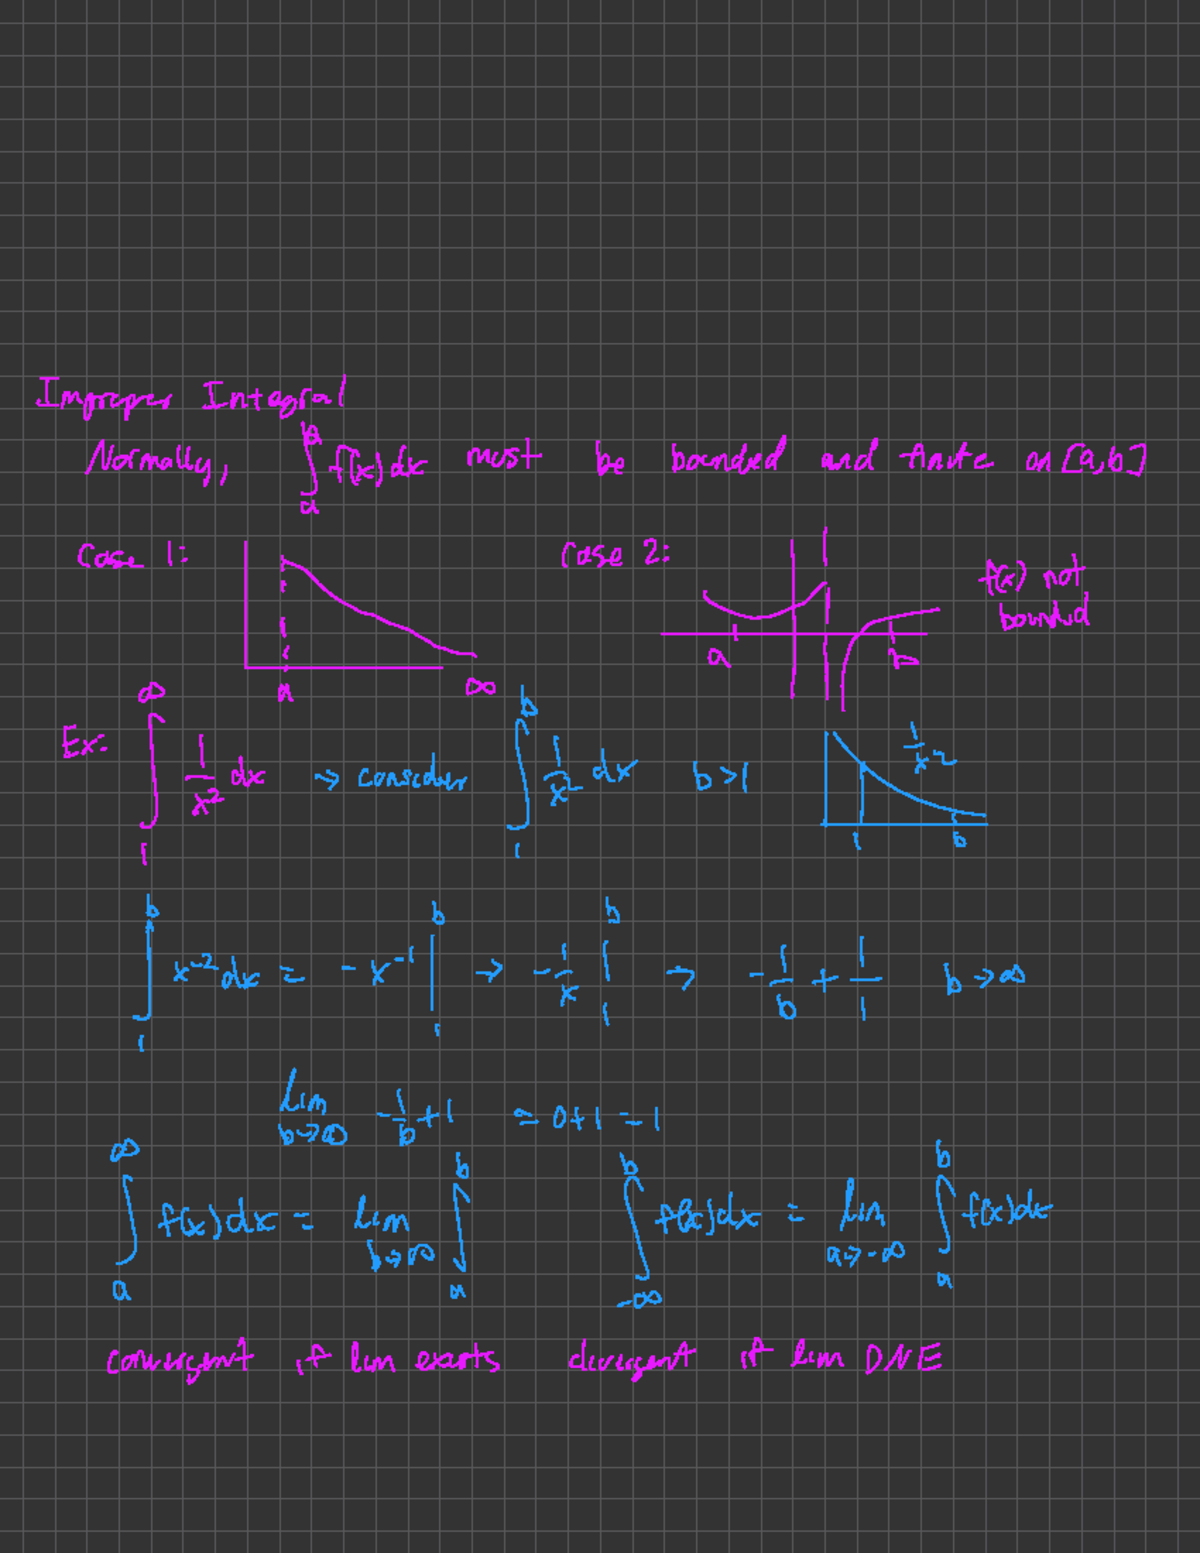 Improper Integral
Normally, ∫_a^b f(x) dx must be bounded and finite on [a,b]
Case 1: Case 2: f(x) not bounded
a ∞ a b
Ex: ∫_1^∞ 1/x² dx → consider ∫_1^b 1/x² dx b>1 1/x² 1 b
∫_1^b x⁻² dx = -x⁻¹ |_1^b → -1/x |_1^b → -1/b + 1/1 b→∞
lim_{b→∞} -1/b + 1 = 0+1 = 1
∫_a^∞ f(x) dx = lim_{b→∞} ∫_a^b ∫_{-∞}^b f(x) dx = lim_{a→-∞} ∫_a^b f(x) dx
convergent if lim exists divergent if lim DNE